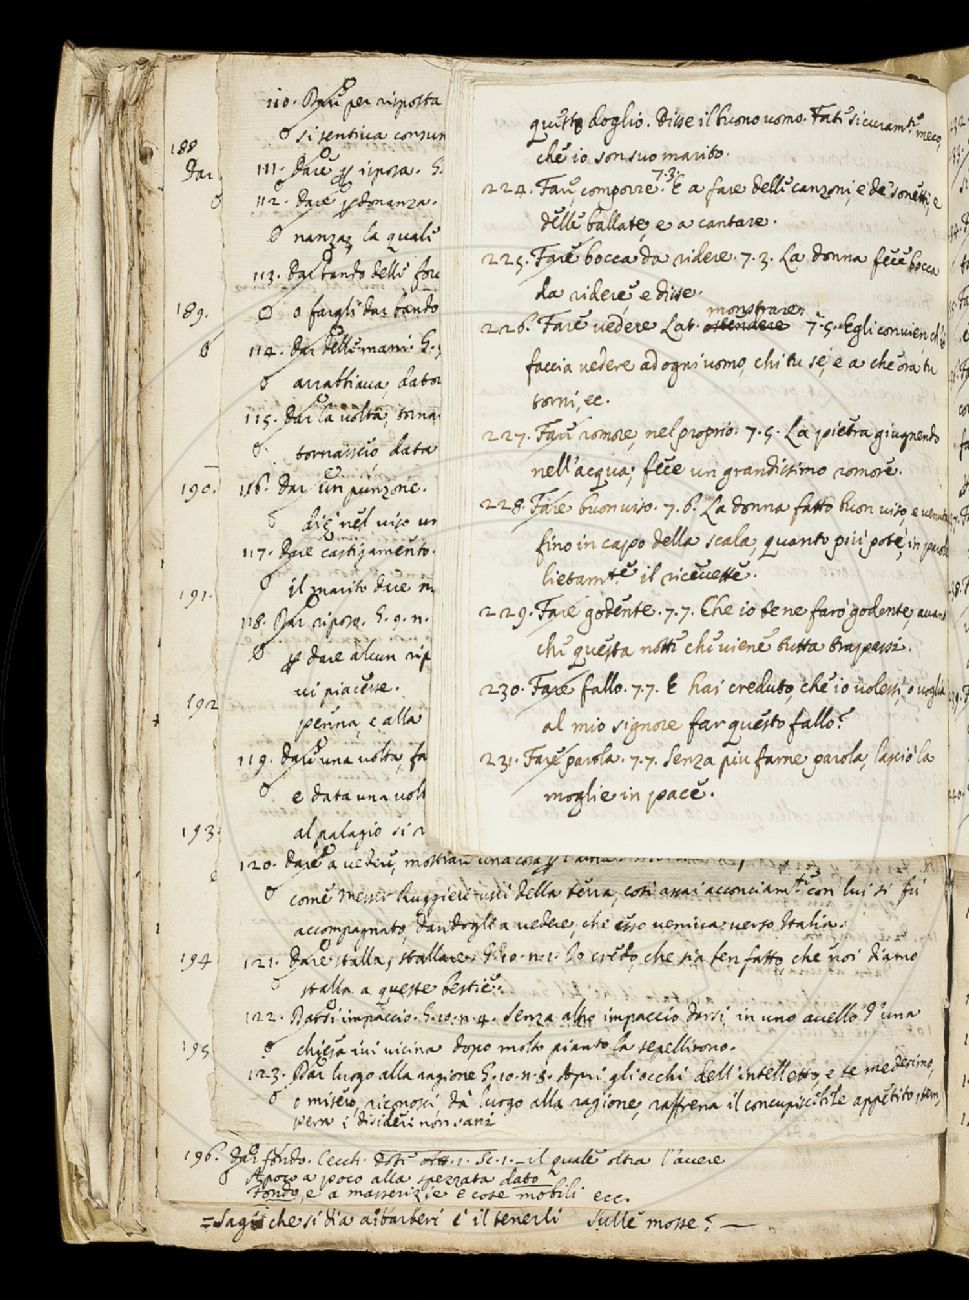 110. Dare per risposta
si sentiva consun
188
Dar
111. Dare p riposa. G.
112. Dare p donanza.
nanza, la quale
113. Dar bando delle forc
189.
o fargli dar bando
114. Dar delle mani G.
arrabbiava, dato
115. Dar la volta, torna
tornassero data
190.
116. Dar un punzone.
diè nel viso un
117. Dare castigamento.
191.
il marito dare
118. Dar riposo. G. 9. n.
p dare alcun rip
vi piacesse.
192
penna, e alla
119. Dare una volta, fa
e data una volt
193.
al palagio si
questo doglio. Disse il buono uomo. Fate sicuramte meco,
che io son suo marito.
224. Fare comporre. 7.3. E a fare delle canzoni, e de' sonetti, e
delle ballate, e a cantare.
225. Fare bocca da ridere. 7. 3. La donna fece bocca
da ridere e disse.
monstrare
226. Fare vedere Lat. ostendere 7. 5. Egli convien ch'io
faccia vedere ad ogni uomo, chi tu se', e a che ora tu
torni, ec.
227. Fare romore, nel proprio. 7. 5. La pietra giugnendo
nell'acqua, fece un grandissimo romore.
228. Fare buon viso. 7. 6. La donna fatto buon viso, e venuta
fino in capo della scala, quanto più potè, in parole
lietamte il ricevette.
229. Fare godente. 7. 7. Che io bene farò godente, avanti
che questa notte che viene tutta trapassi.
230. Fare fallo. 7. 7. E hai creduto, che io volessi, o voglia
al mio signore far questo fallo?
231. Fare parola. 7. 7. Senza più farne parola, lasciò la
moglie in pace.
120. Dare a vedere, mostrare una cosa p
come Messer Ruggieri uscì della terra, così assai acconciamte con lui si fu
accompagnato, dandogli a vedere, che esso veniva verso Italia.
194
121. Dare stalla, stallare G. 10. n. 1. Io credo, che sia ben fatto, che noi diamo
stalla a queste bestie.
122. Darsi impaccio. G. 10. n. 4. Senza altro impaccio darsi, in uno avello d'una
195
chiesa ivi vicina dopo molto pianto la sepellirono.
123. Dar luogo alla ragione G. 10. n. 8. Apri gli occhi dell'intelletto, e te medesimo,
o misero, riconosci, da luogo alla ragione, raffrena il concupiscibile appetito, tem,
pera i disideri non sani
196. Dar fondo. Cecch. Dote att. 1. Sc. 1. – il quale oltra l'avere
A poco a poco alla spezzata dato
fondo, e a masserizie e cose mobili ecc.
che si dia a' barberi è il tenerli sulle mosse? —